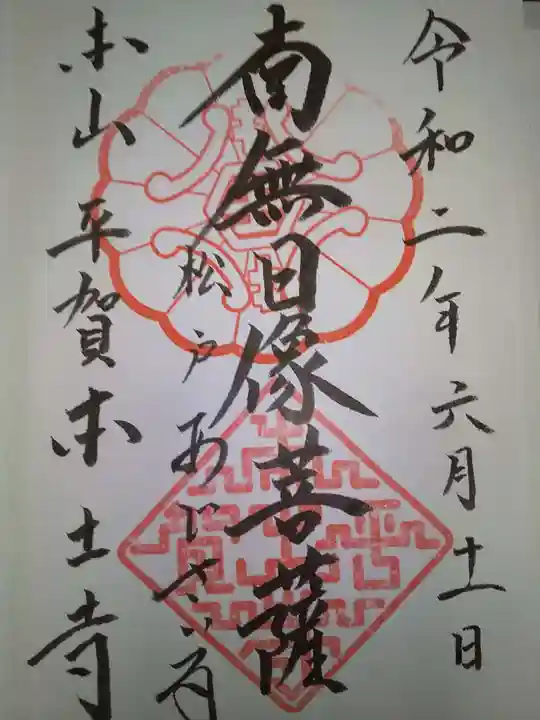 令和二年六月十一日
南無日像菩薩
松戸あじさい寺
本山 平賀本土寺